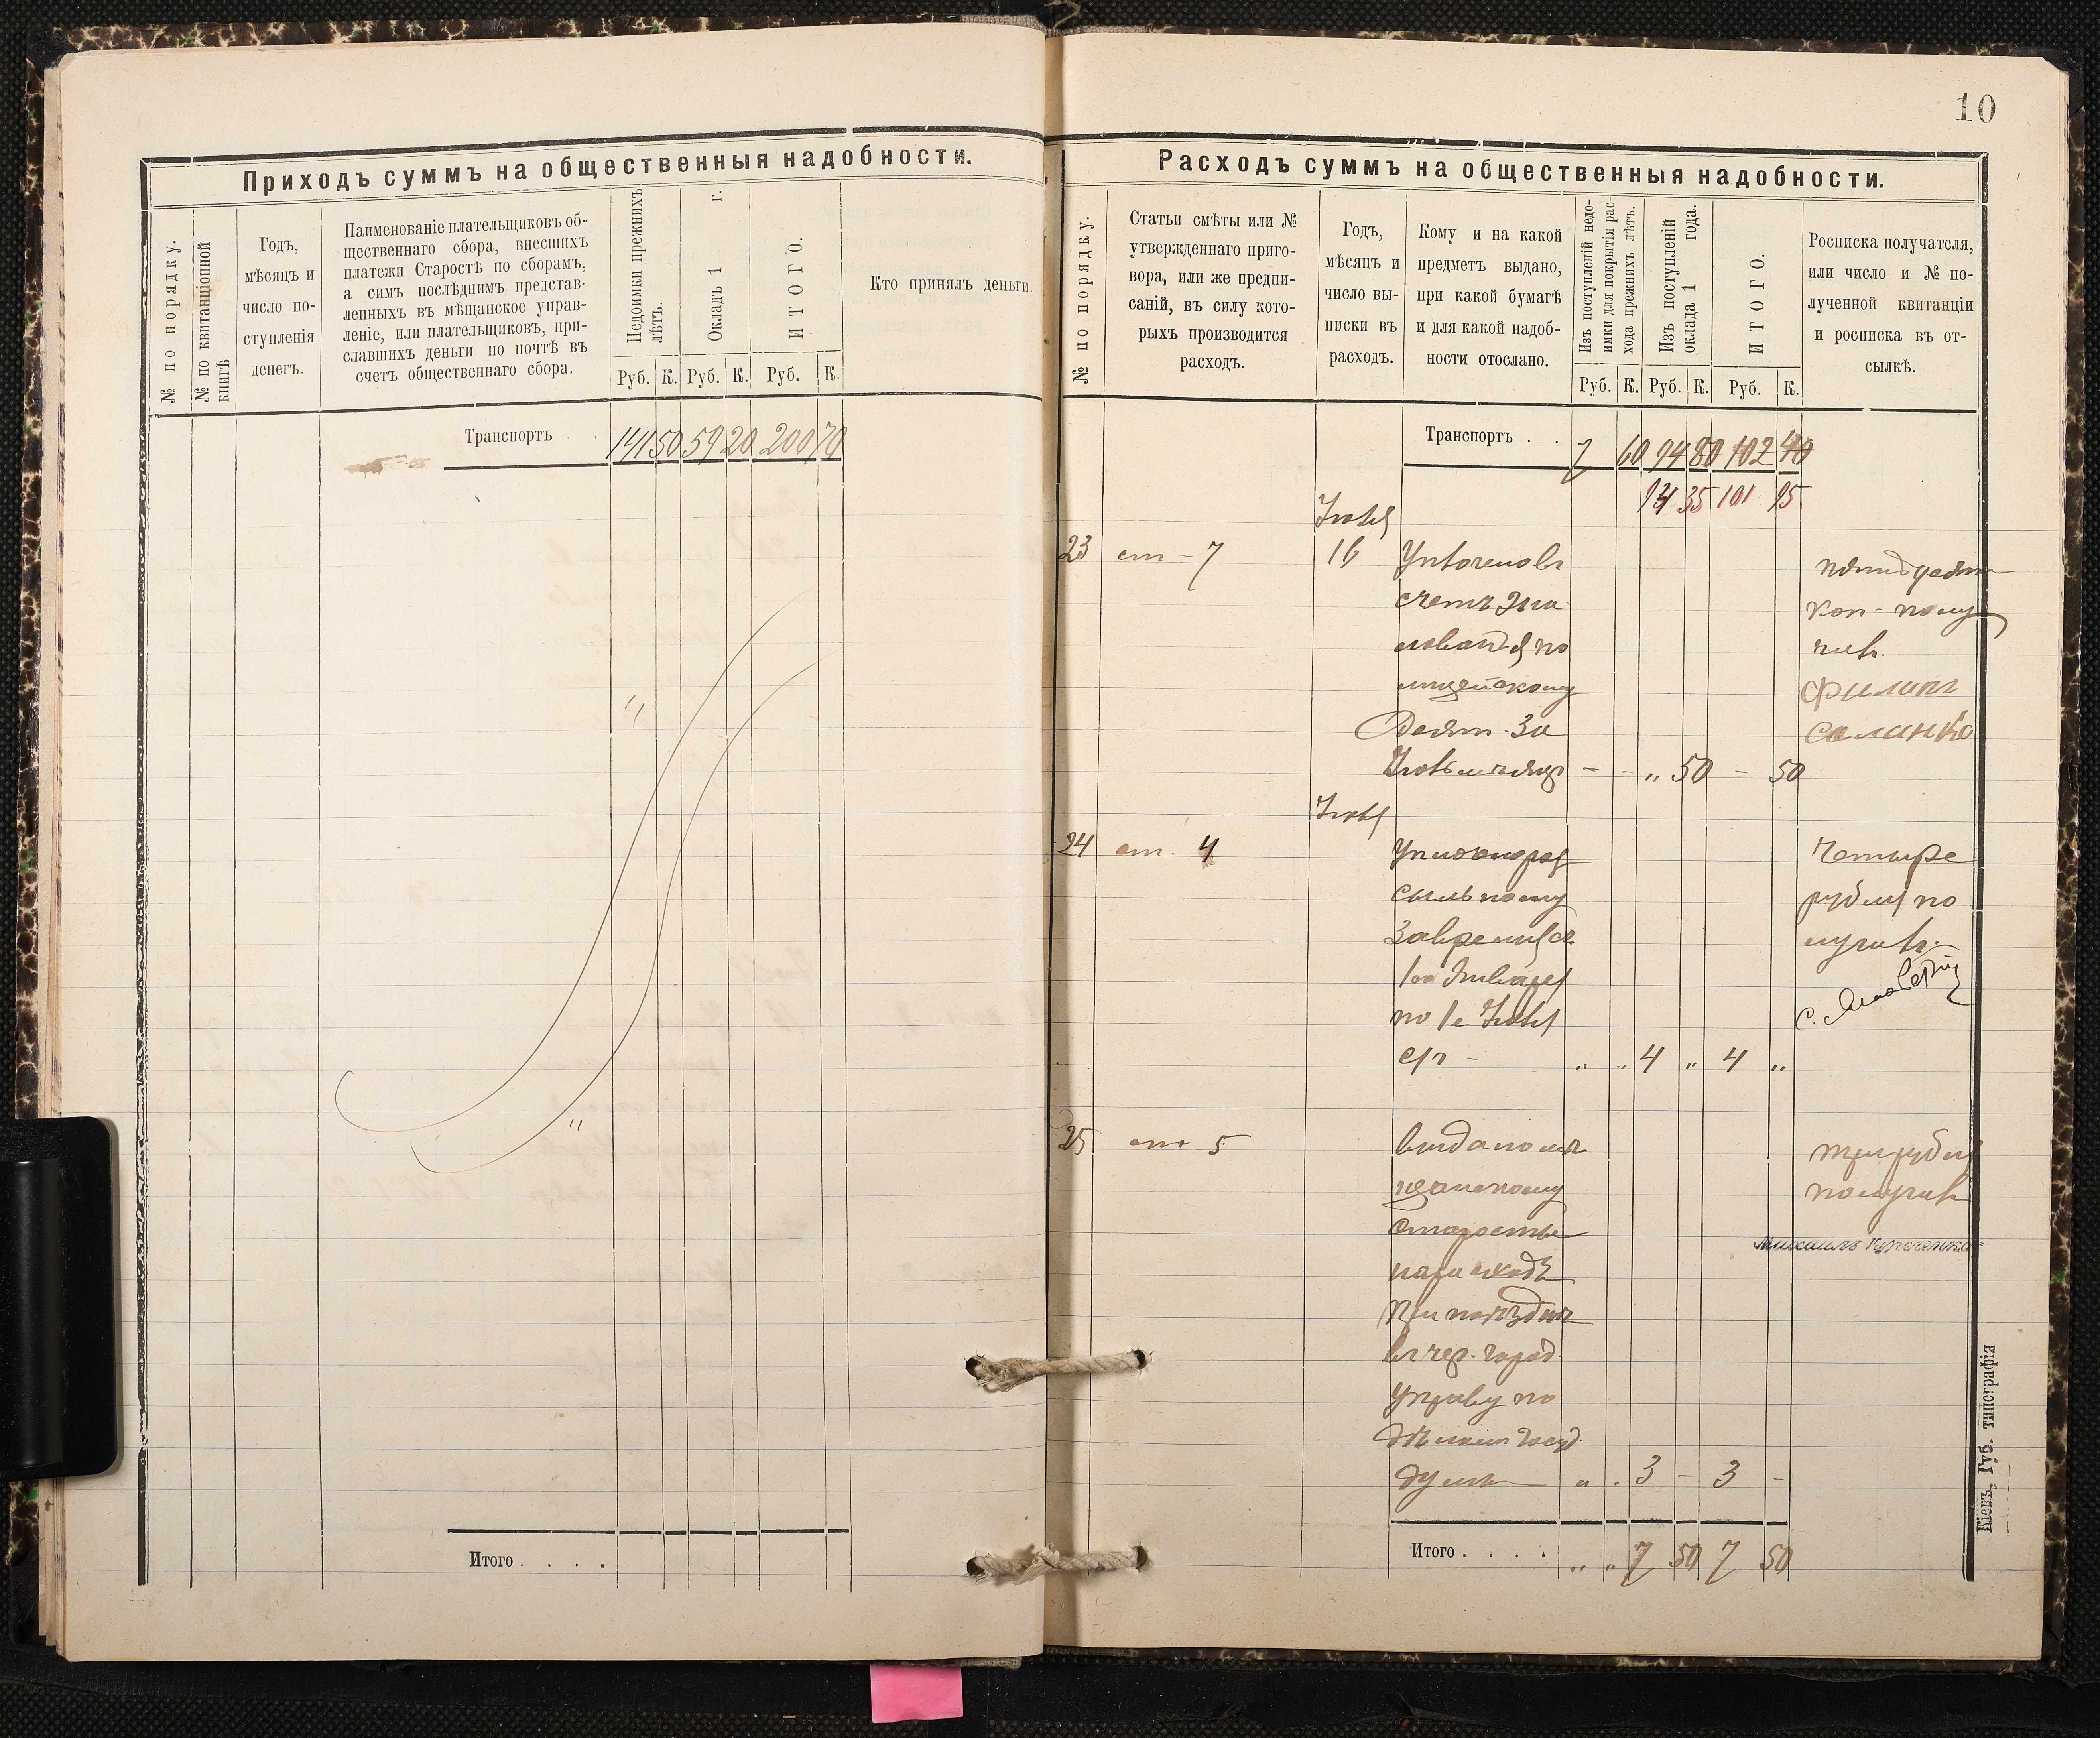 10
Приходъ суммъ на общественныя надобности.
№ по порядку.
№ по квитанціонной
книгѣ.
Годъ,
мѣсяцъ и
число по-
ступленія
денегъ.
Наименованіе плательщиковъ об-
щественнаго сбора, внесшихъ
платежи Старостѣ по сборамъ,
а симъ послѣднимъ представ-
ленныхъ въ мѣщанское управ-
леніе, или плательщиковъ, при-
славшихъ деньги по почтѣ въ
счетъ общественнаго сбора.
Недоимки прежнихъ
лѣтъ.
Окладъ 1 г.
ИТОГО.
Кто принялъ деньги.
Руб. К. Руб. К. Руб. К.
Транспортъ . . 141 50 59 20 200 70
"
"
Итого . . . .
Расходъ суммъ на общественныя надобности.
№ по порядку.
Статьи смѣты или №
утвержденнаго приго-
вора, или же предпи-
саній, въ силу кото-
рыхъ производится
расходъ.
Годъ,
мѣсяцъ и
число вы-
писки въ
расходъ.
Кому и на какой
предметъ выдано,
при какой бумагѣ
и для какой надоб-
ности отослано.
Изъ поступленій недо-
имки для покрытія рас-
хода прежнихъ лѣтъ.
Изъ поступленій
оклада 1 года.
ИТОГО.
Росписка получателя,
или число и № по-
лученной квитанціи
и росписка въ от-
сылкѣ.
Руб. К. Руб. К. Руб. К.
Транспортъ . . 7 60 94 80 102 40
94 35 101 95
Іюля
23 ст - 7 16
счетъ жа
лованья по
лицейскому
Десят. За
Іюль мѣсяцъ - - „ 50 - 50
пятьдесят
коп - полу
чив
Филипъ
Саланко
Іюля
24 ст. 4
сыльному
За время съ
1го Января
по 1е Іюля
с/г - „ „ 4 „ 4 „
Четыре
рубля по
лучивъ.
25 ст 5 выдано мѣ
щанскому
Старостѣ
на расходъ
При поѣздкѣ
въ чер. город.
Управу по
дѣламъ Госуд.
думы „ . 3 - 3 -
три рубля
получив
Михаилъ
Итого . . . . „ „ 7 50 7 50
Кіевъ, Губ. типографія